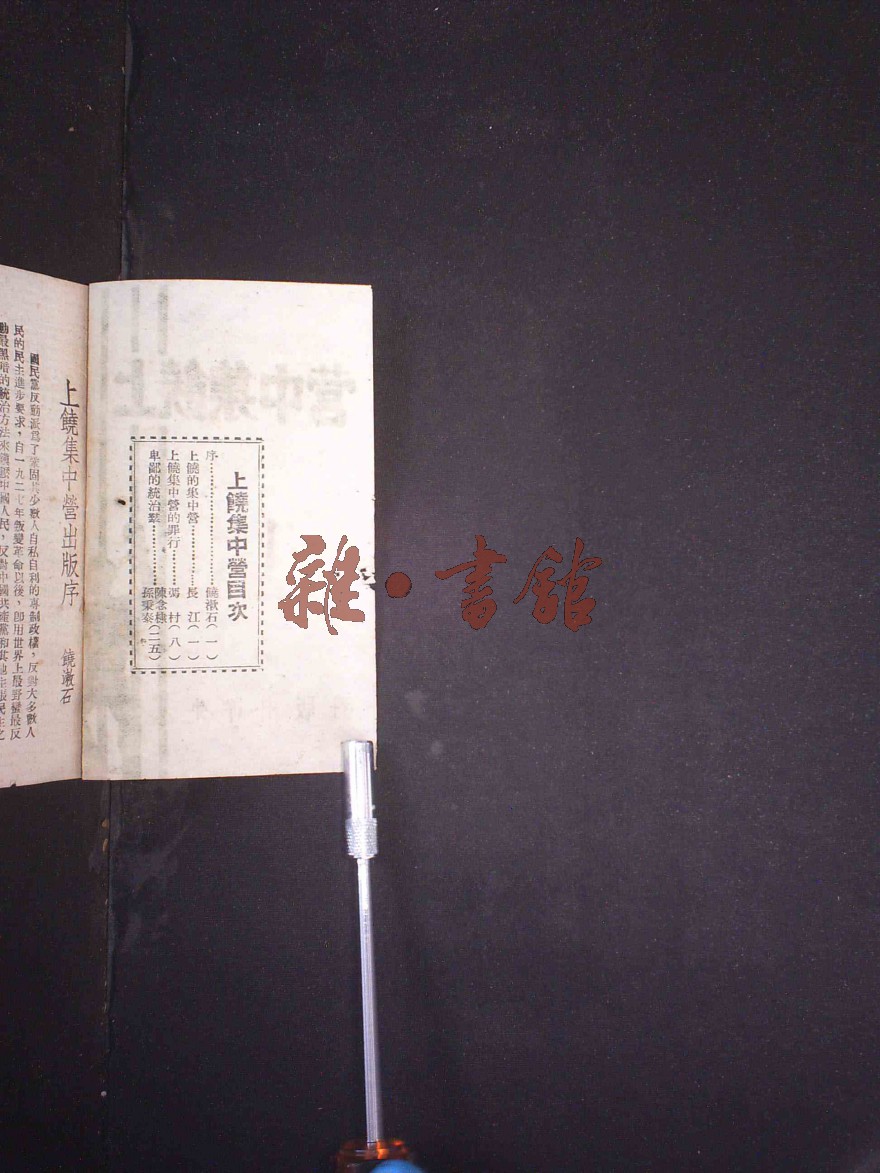 上饒集中營目次
序……………………饒漱石(一)
上饒的集中營…………長 江(一)
上饒集中營的罪行……弼 村(八)
卑鄙的統治
孫秉泰(二五)
上饒集中營出版序 饒漱石
國民黨反動派爲了鞏固其少數人自私自利的專制政權,反對大多數人
民的民主進步要求,自一九二七年叛變革命以後,卽用世界上最野蠻最反
動最黑暗的統治方法來鎮壓中國人民,反對中國共產黨和其他主張民主之
雜·書館